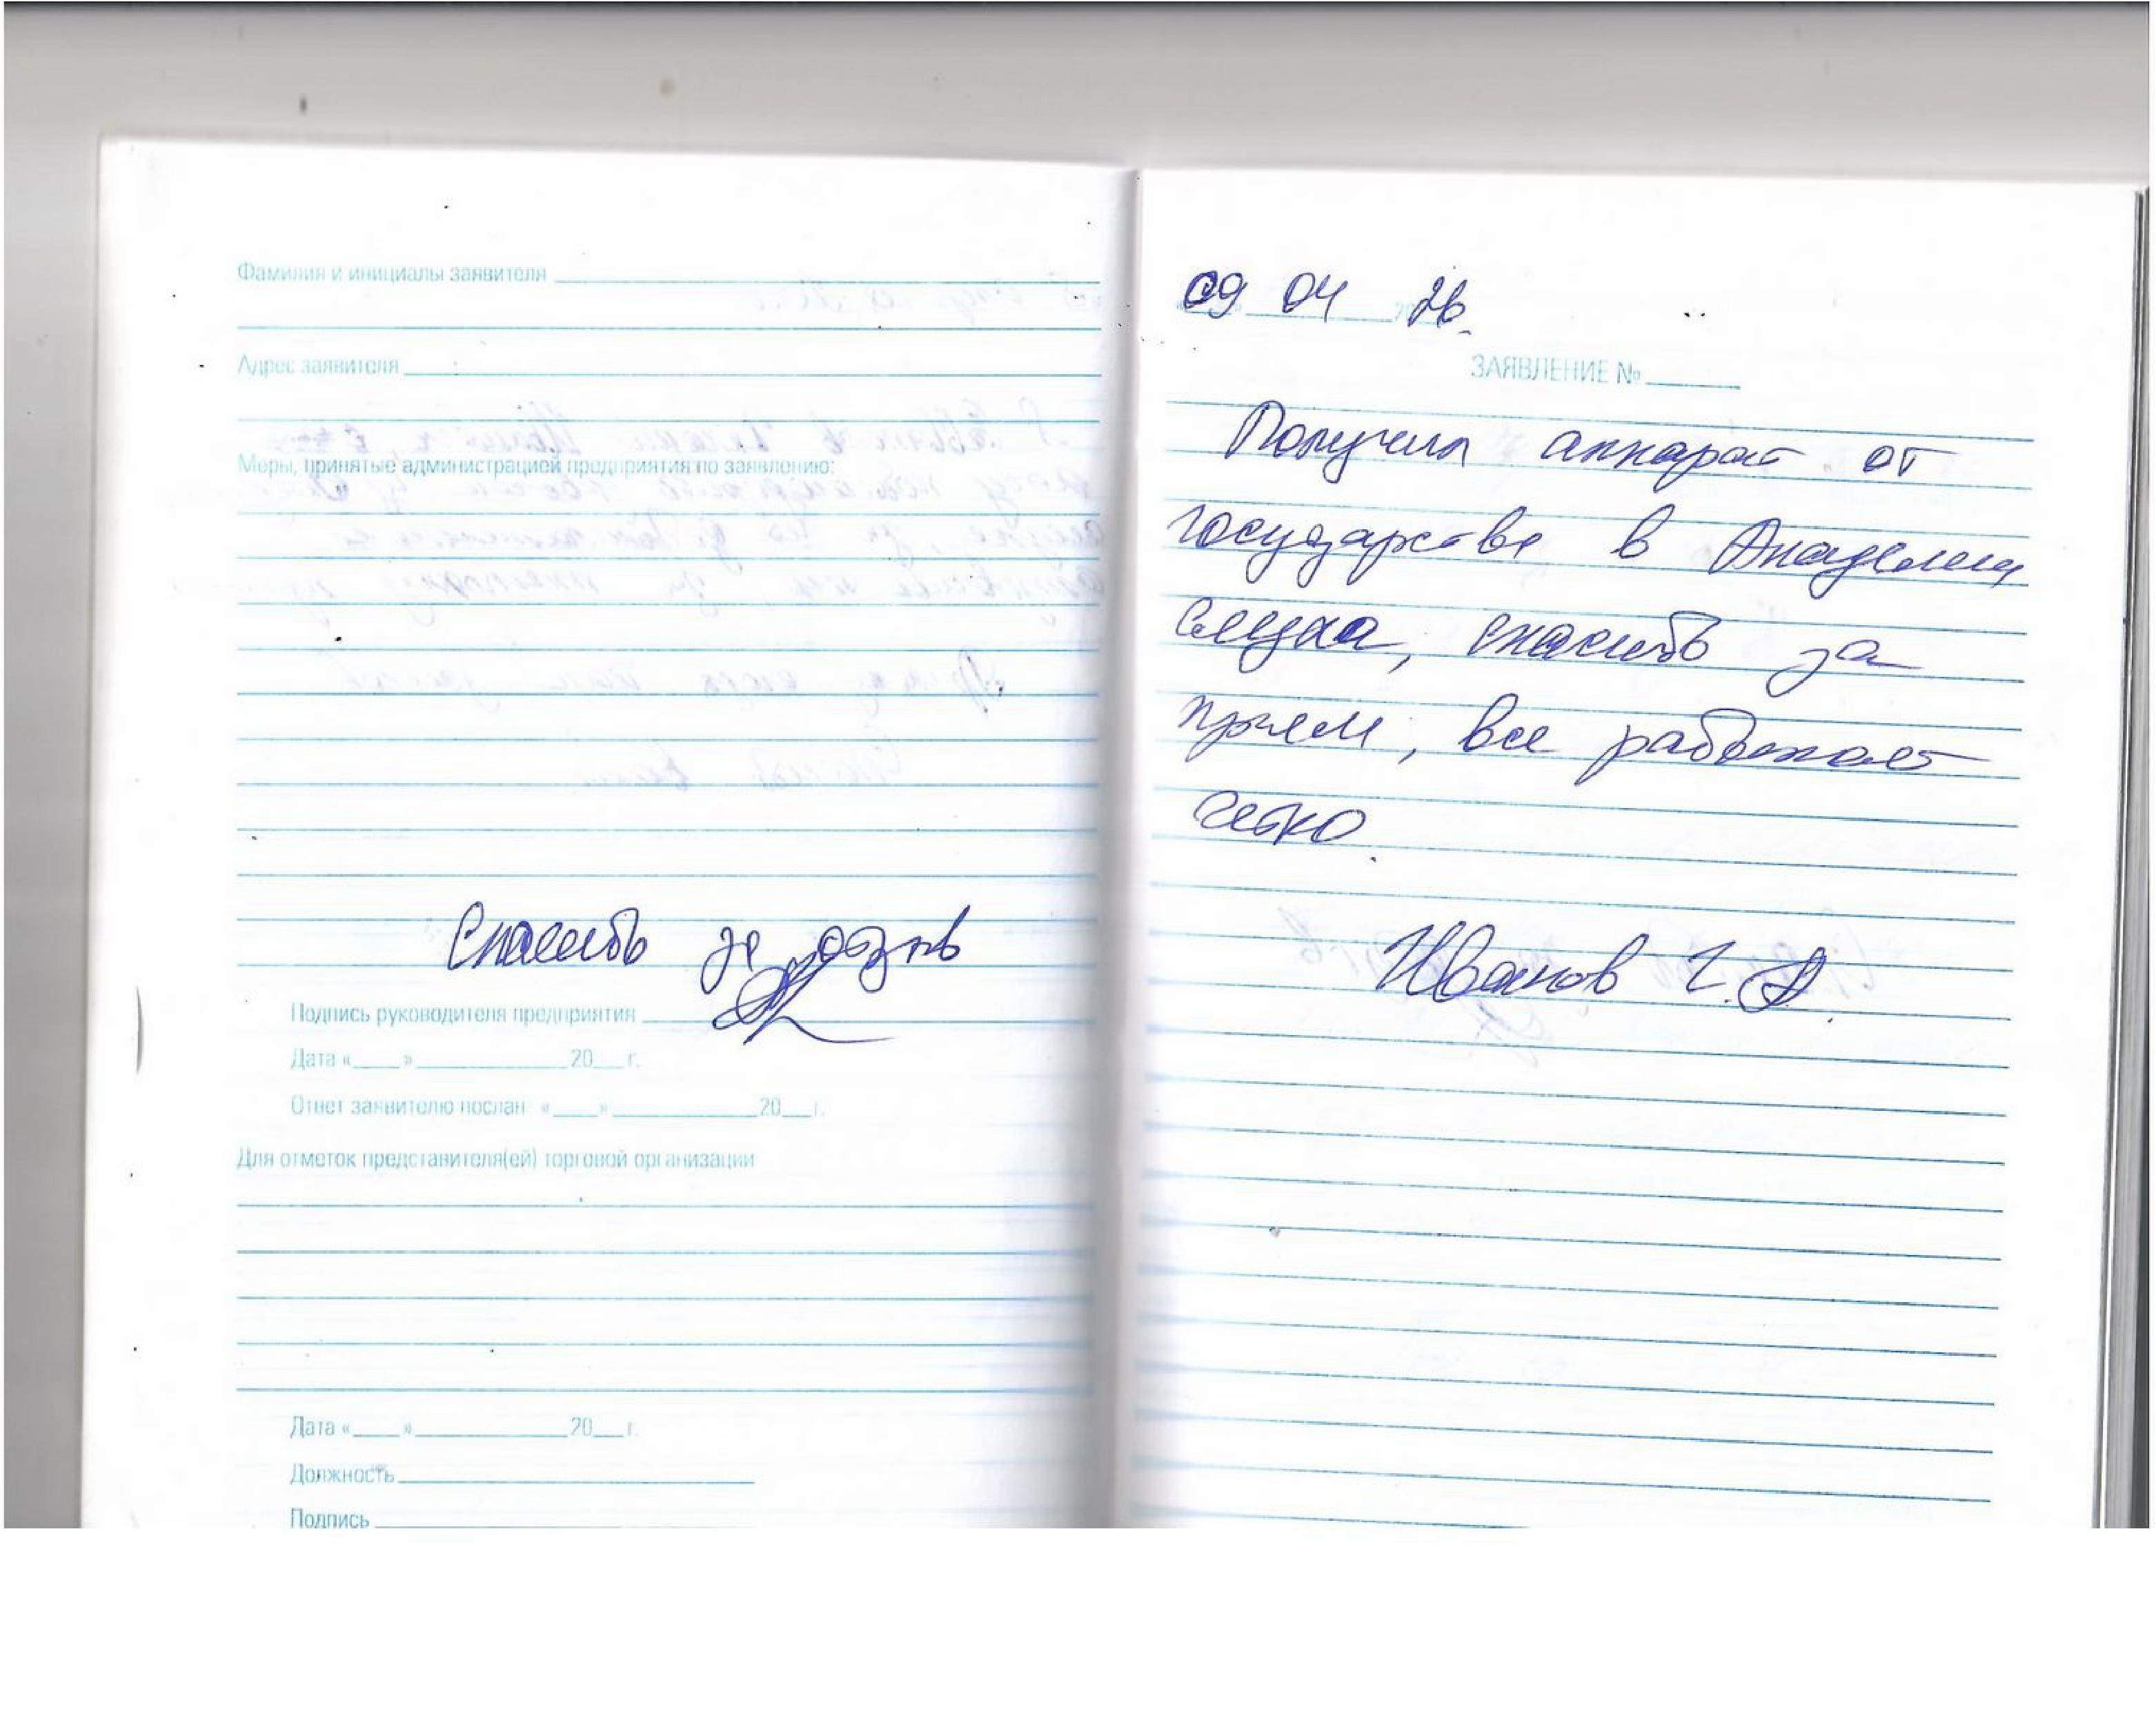 Фамилия и инициалы заявителя
Адрес заявителя
Меры, принятые администрацией предприятия по заявлению:
Спасибо за отзыв
Подпись руководителя предприятия
Дата «____»____________20___г.
Ответ заявителю послан «____»____________20___г.
Для отметок представителя(ей) торговой организации
Дата «____»____________20___г.
Должность
Подпись
09 04 26
ЗАЯВЛЕНИЕ №
Получил аппарат от
государства в Академии
слуха, спасибо за
прием, все работает
четко.
Иванов Г.А.